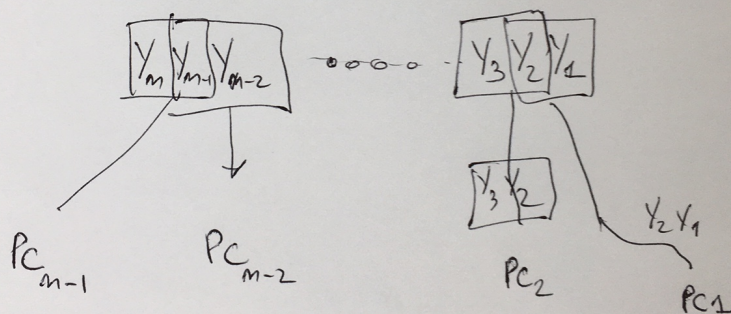 Yₙ Yₙ₋₁ Yₙ₋₂ Y₃ Y₂ Y₁
Y₃ Y₂
Y₂ Y₁
PCₙ₋₁ PCₙ₋₂ PC₂ PC1